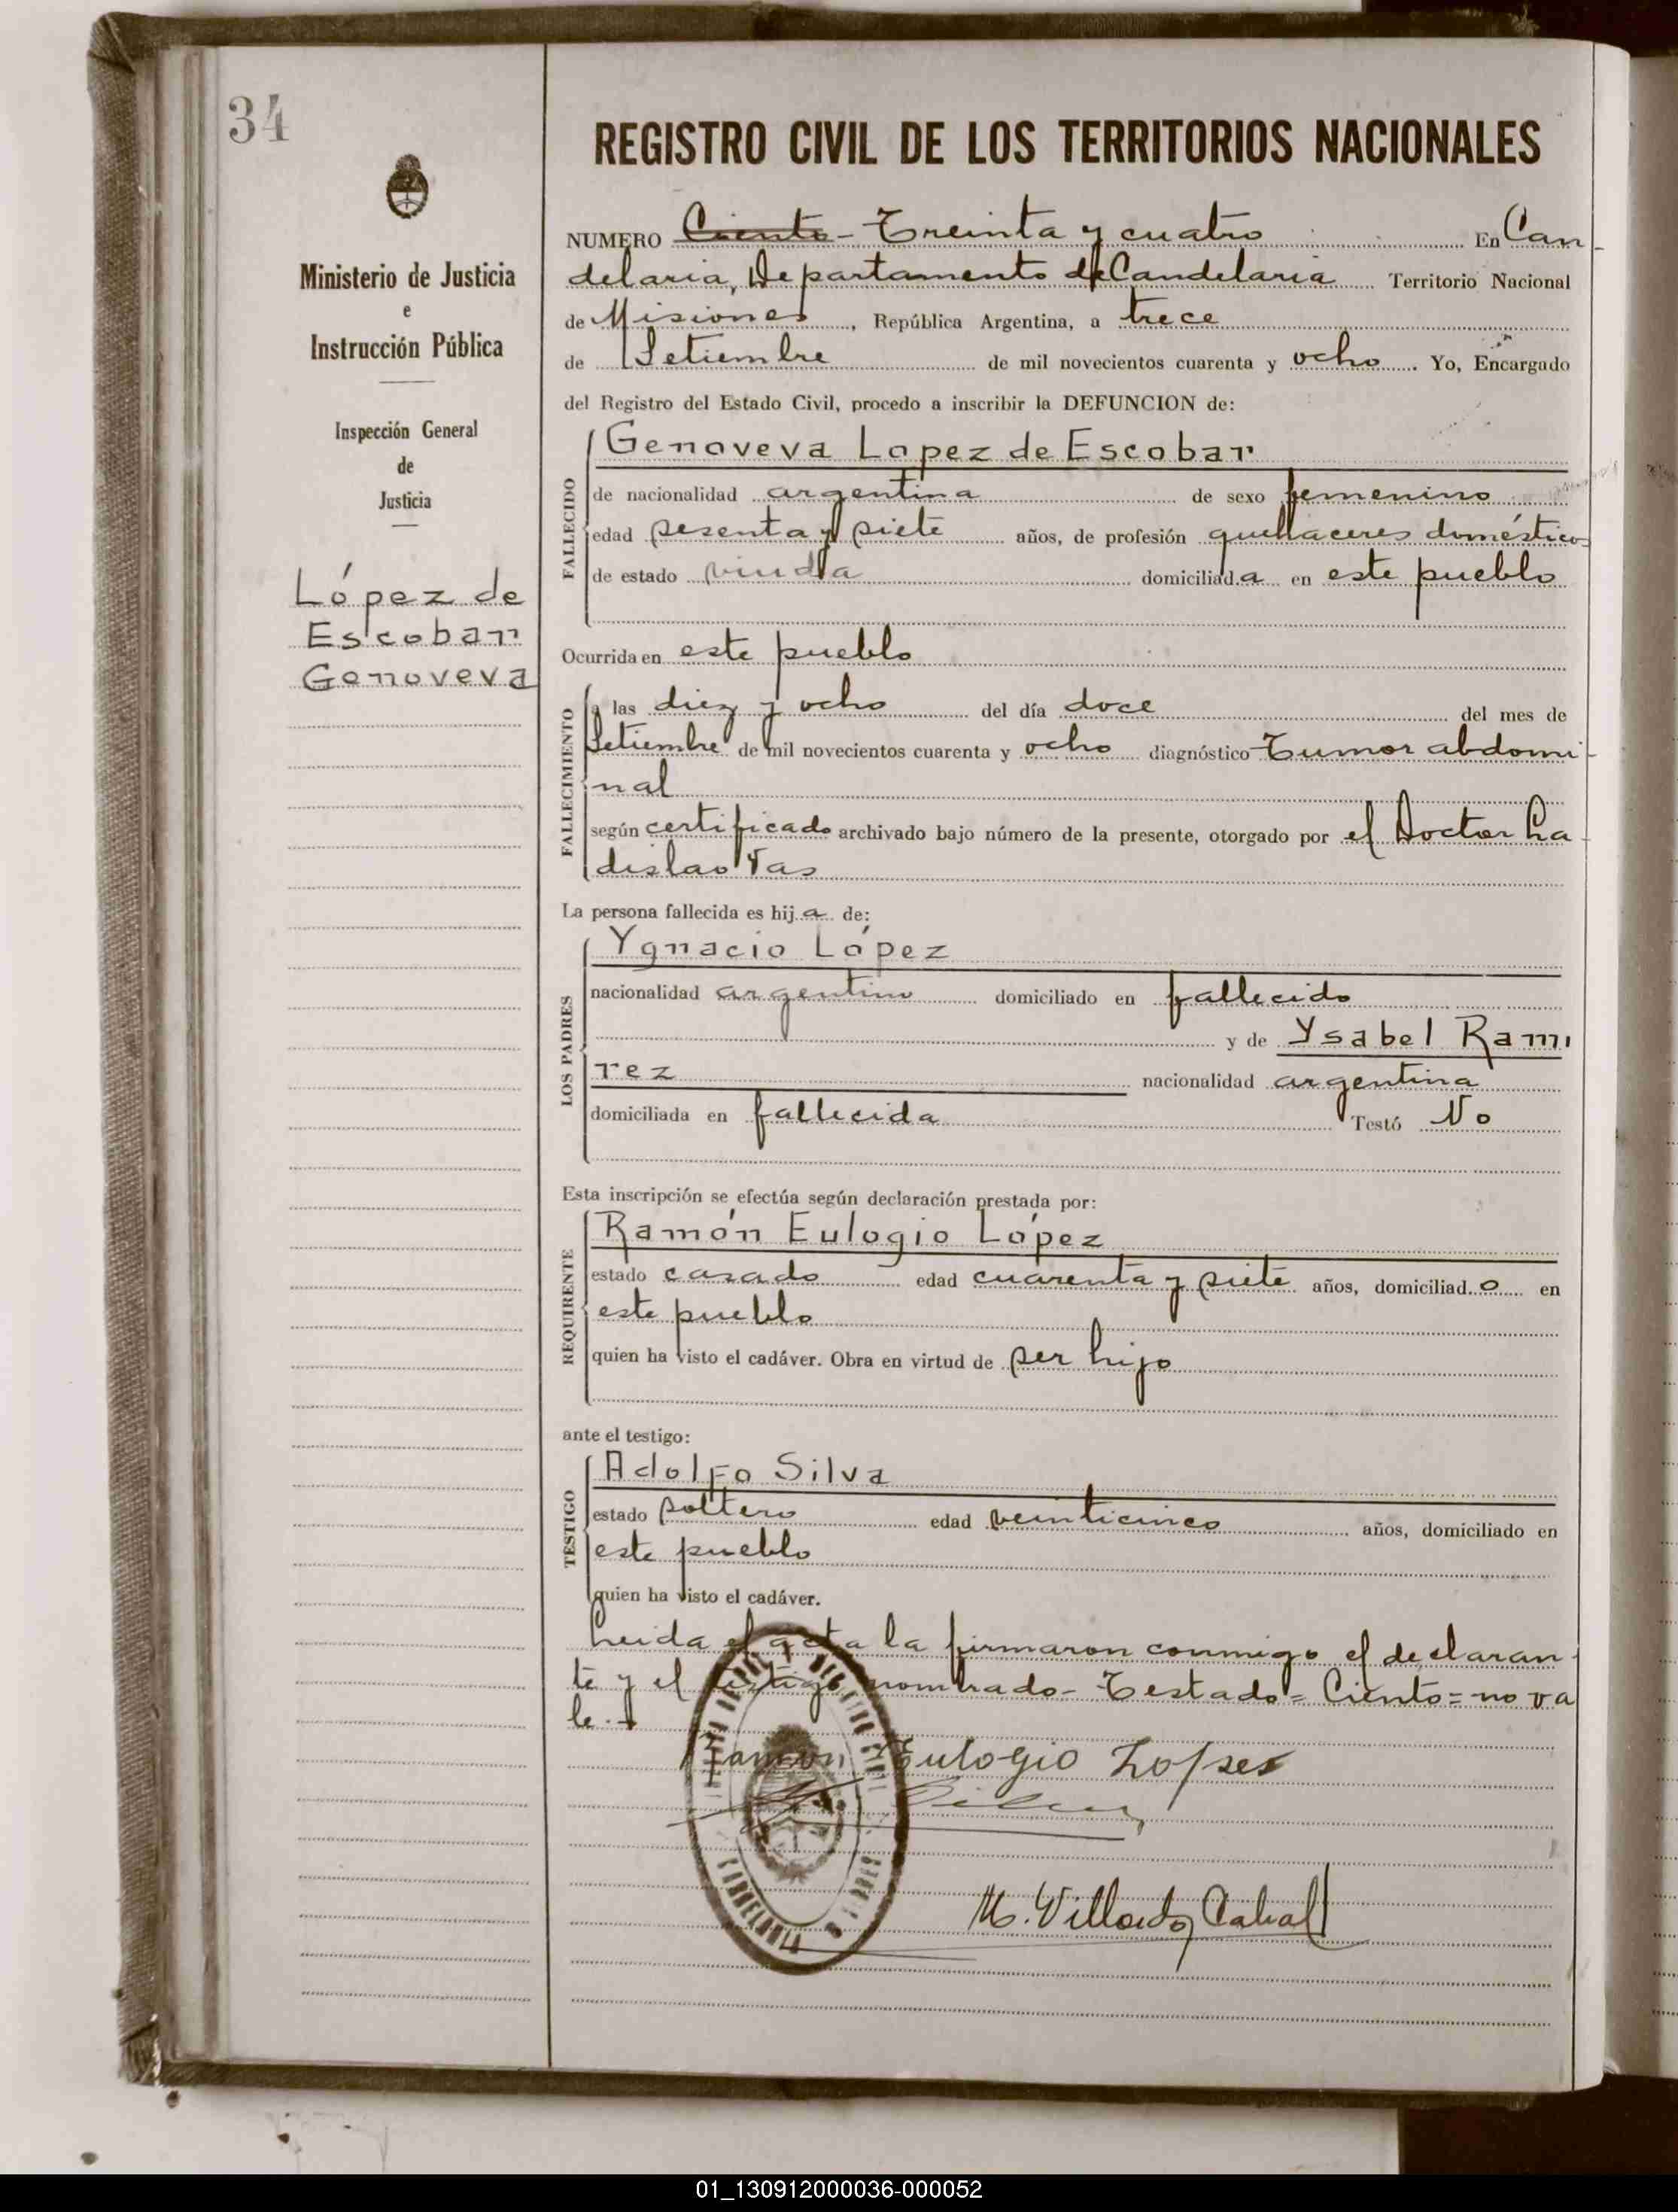 34
Ministerio de Justicia
e
Instrucción Pública
Inspección General
de
Justicia
López de
Escobar
Genoveva
REGISTRO CIVIL DE LOS TERRITORIOS NACIONALES
NUMERO Ciento - Treinta y cuatro En Can
delaria, Departamento de Candelaria Territorio Nacional
de Misiones, República Argentina, a trece
de Setiembre de mil novecientos cuarenta y ocho. Yo, Encargado
del Registro del Estado Civil, procedo a inscribir la DEFUNCION de:
FALLECIDO
Genoveva Lopez de Escobar
de nacionalidad argentina de sexo femenino
edad sesenta y siete años, de profesión quehaceres domésticos
de estado viuda domiciliada en este pueblo
Ocurrida en este pueblo
FALLECIMIENTO
a las diez y ocho del día doce del mes de
Setiembre de mil novecientos cuarenta y ocho diagnóstico Tumor abdomi-
nal
según certificado archivado bajo número de la presente, otorgado por el Doctor La-
dislao Vas
La persona fallecida es hija de:
LOS PADRES
Ygnacio López
nacionalidad argentino domiciliado en fallecido
y de Ysabel Rami
rez nacionalidad argentina
domiciliada en fallecida Testó No
Esta inscripción se efectúa según declaración prestada por:
REQUIRENTE
Ramón Eulogio López
estado casado edad cuarenta y siete años, domiciliado en
este pueblo
quien ha visto el cadáver. Obra en virtud de ser hijo
ante el testigo:
TESTIGO
Adolfo Silva
estado soltero edad veinticinco años, domiciliado en
este pueblo
quien ha visto el cadáver.
Leida el acta la firmaron conmigo el declaran-
te y el testigo nombrado - Testado = Ciento = no va
le.-
Ramon Eulogio Lopes
Silva
M. Villordo Cabral
CANDELARIA
01_130912000036-000052